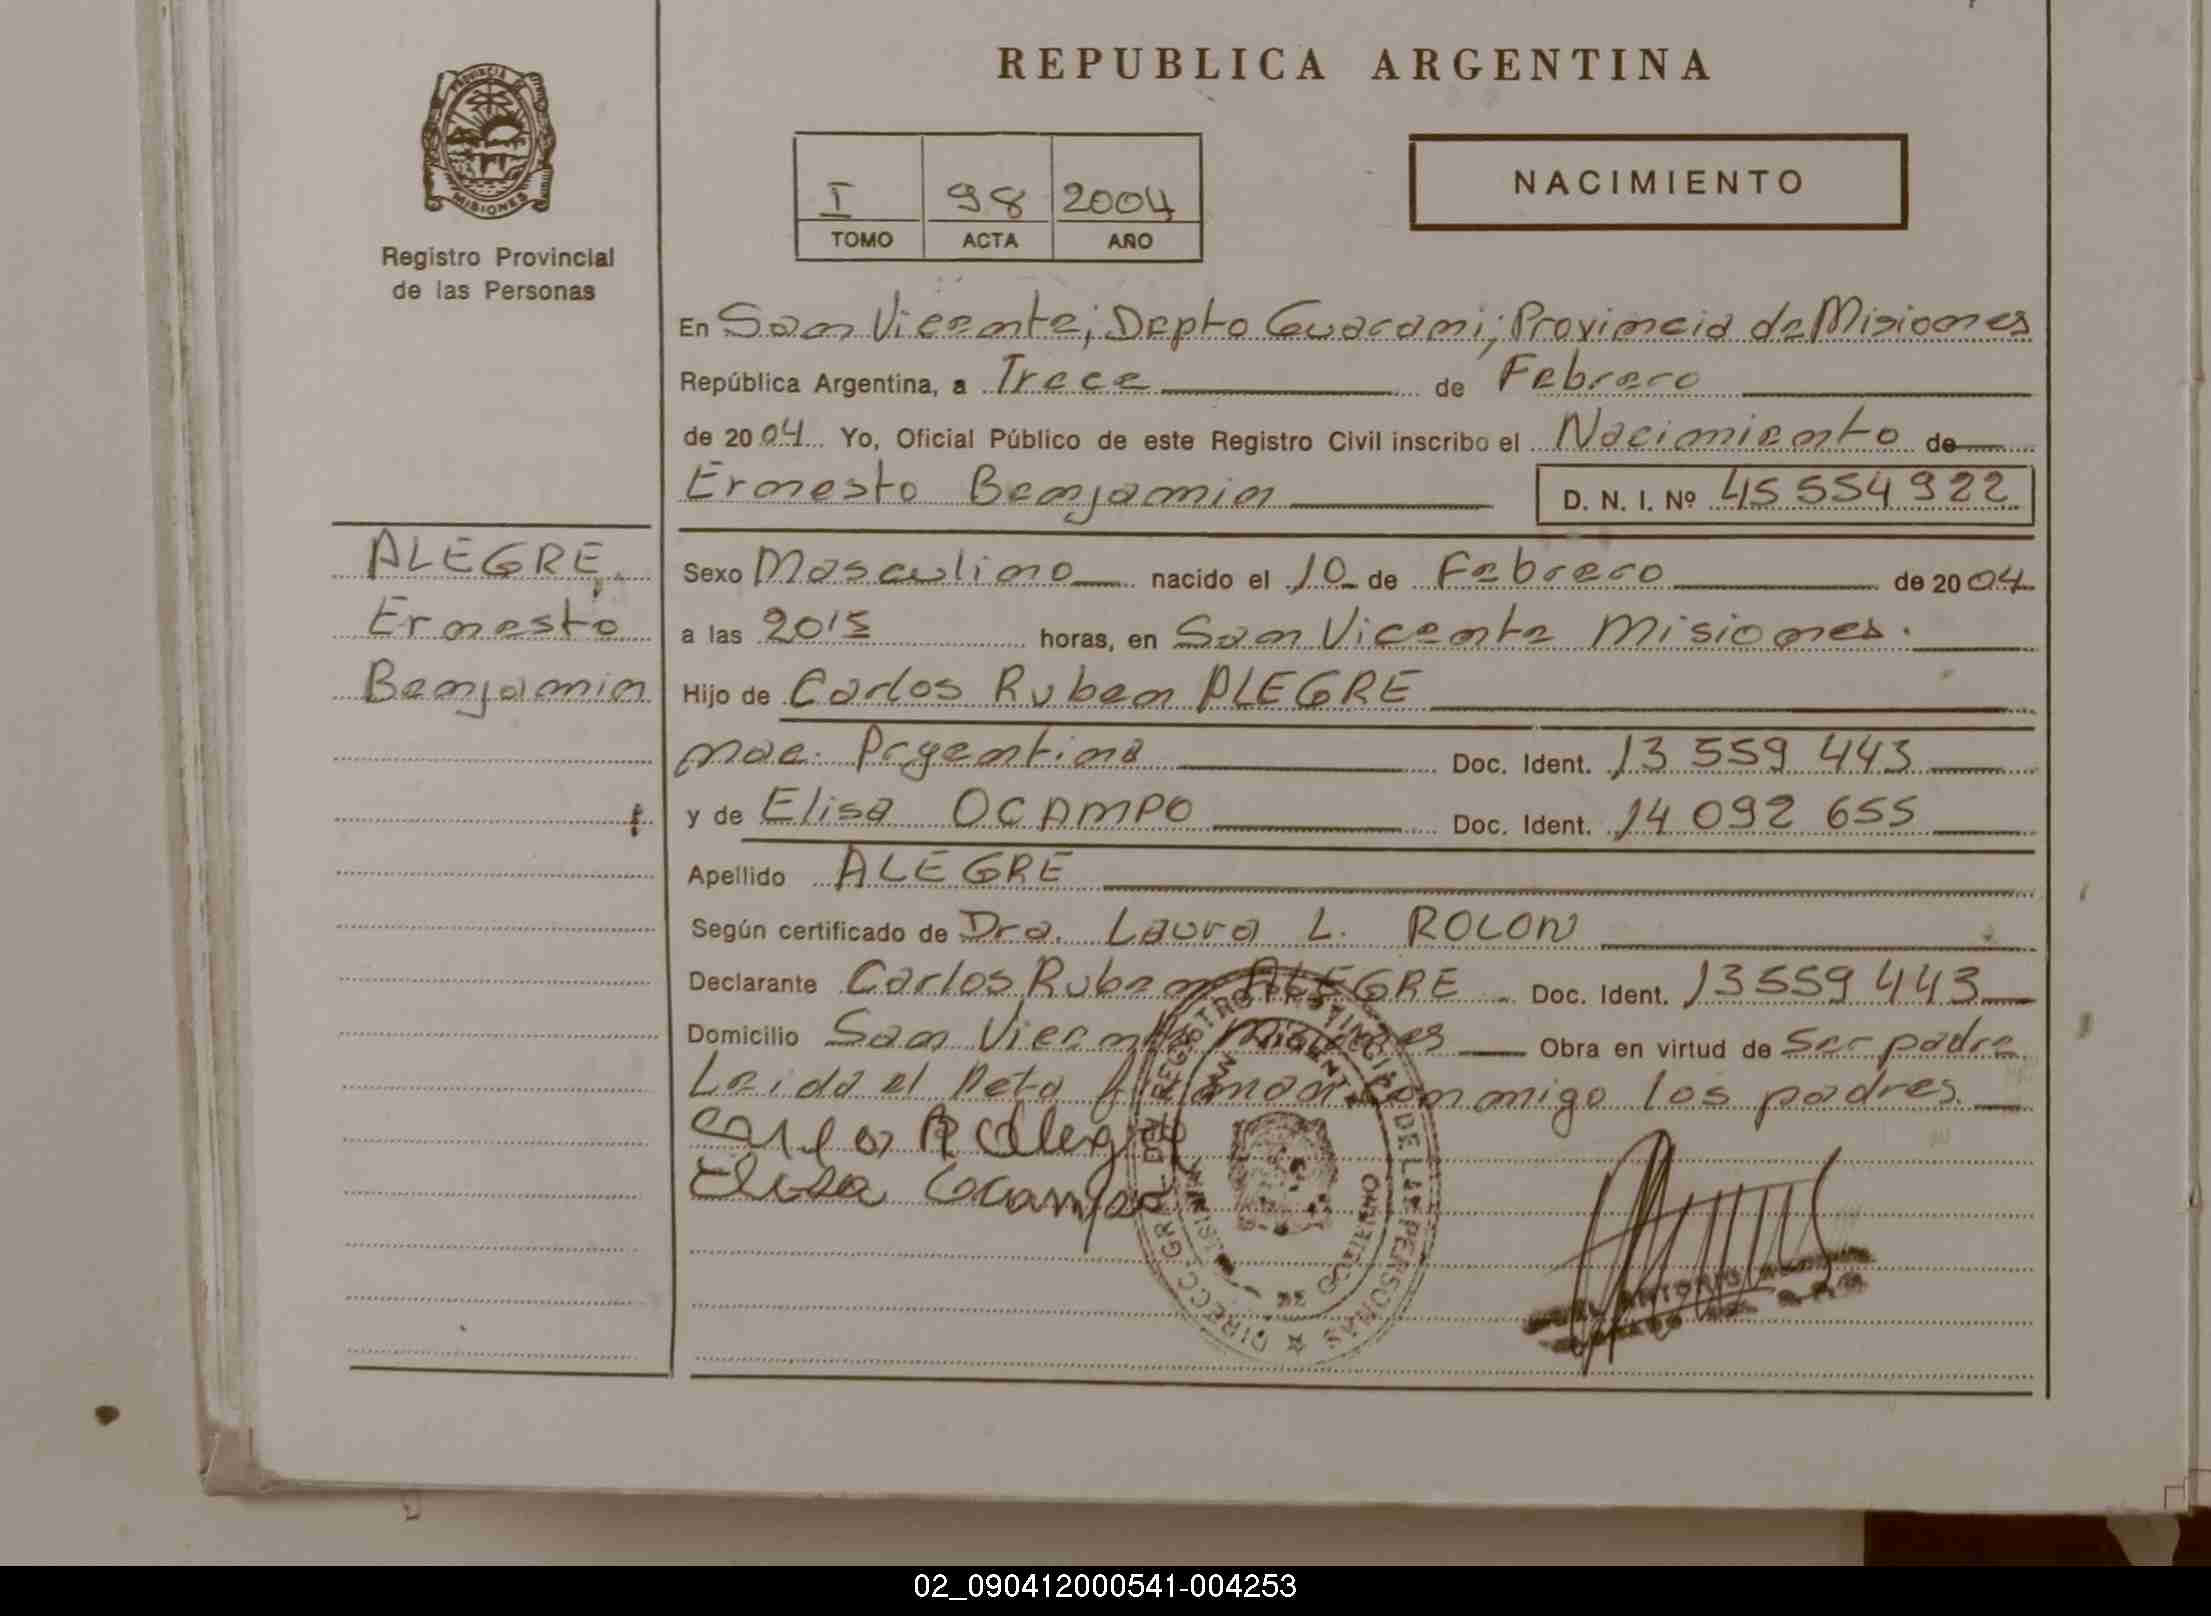 REPUBLICA ARGENTINA
PROVINCIA DE
MISIONES
Registro Provincial
de las Personas
NACIMIENTO
I 98 2004
TOMO ACTA AÑO
En San Vicente; Depto Guarani; Provincia de Misiones
República Argentina, a Trece de Febrero
de 2004 Yo, Oficial Público de este Registro Civil inscribo el Nacimiento de
Ernesto Benjamin D. N. I. Nº 45 554 922
ALEGRE
Ernesto
Benjamin
Sexo Masculino nacido el 10 de Febrero de 2004
a las 2015 horas, en San Vicente Misiones.
Hijo de Carlos Ruben ALEGRE
nac. Argentina Doc. Ident. 13 559 443
y de Elisa OCAMPO Doc. Ident. 14 092 655
Apellido ALEGRE
Según certificado de Dra. Laura L. ROLON
Declarante Carlos Ruben ALEGRE Doc. Ident. 13559443
Domicilio San Vicente Misiones Obra en virtud de Ser padre
Leida el Acta firman conmigo los padres.
Carlos R Alegre
Elisa Ocampo
REGISTRO PROVINCIAL DE LAS PERSONAS
DE GOBIERNO
02_090412000541-004253